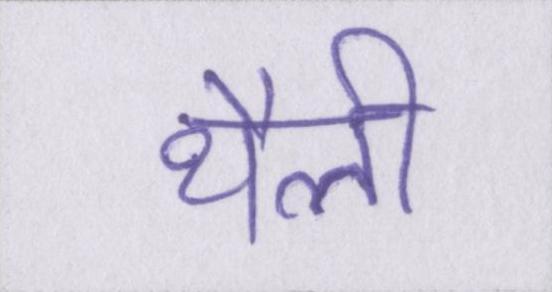 थैली